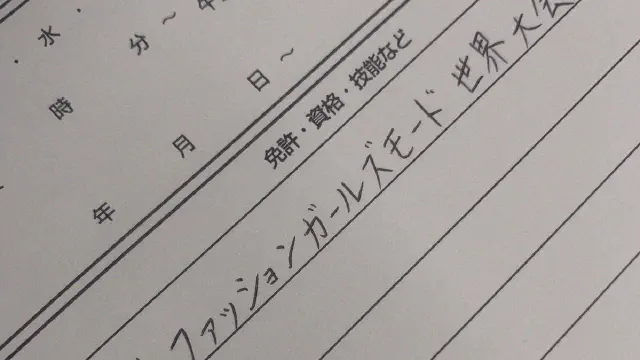 ・水・
時 分 ～ 午
年 月 日 ～
免許・資格・技能など
ファッションガールズモード 世界大会